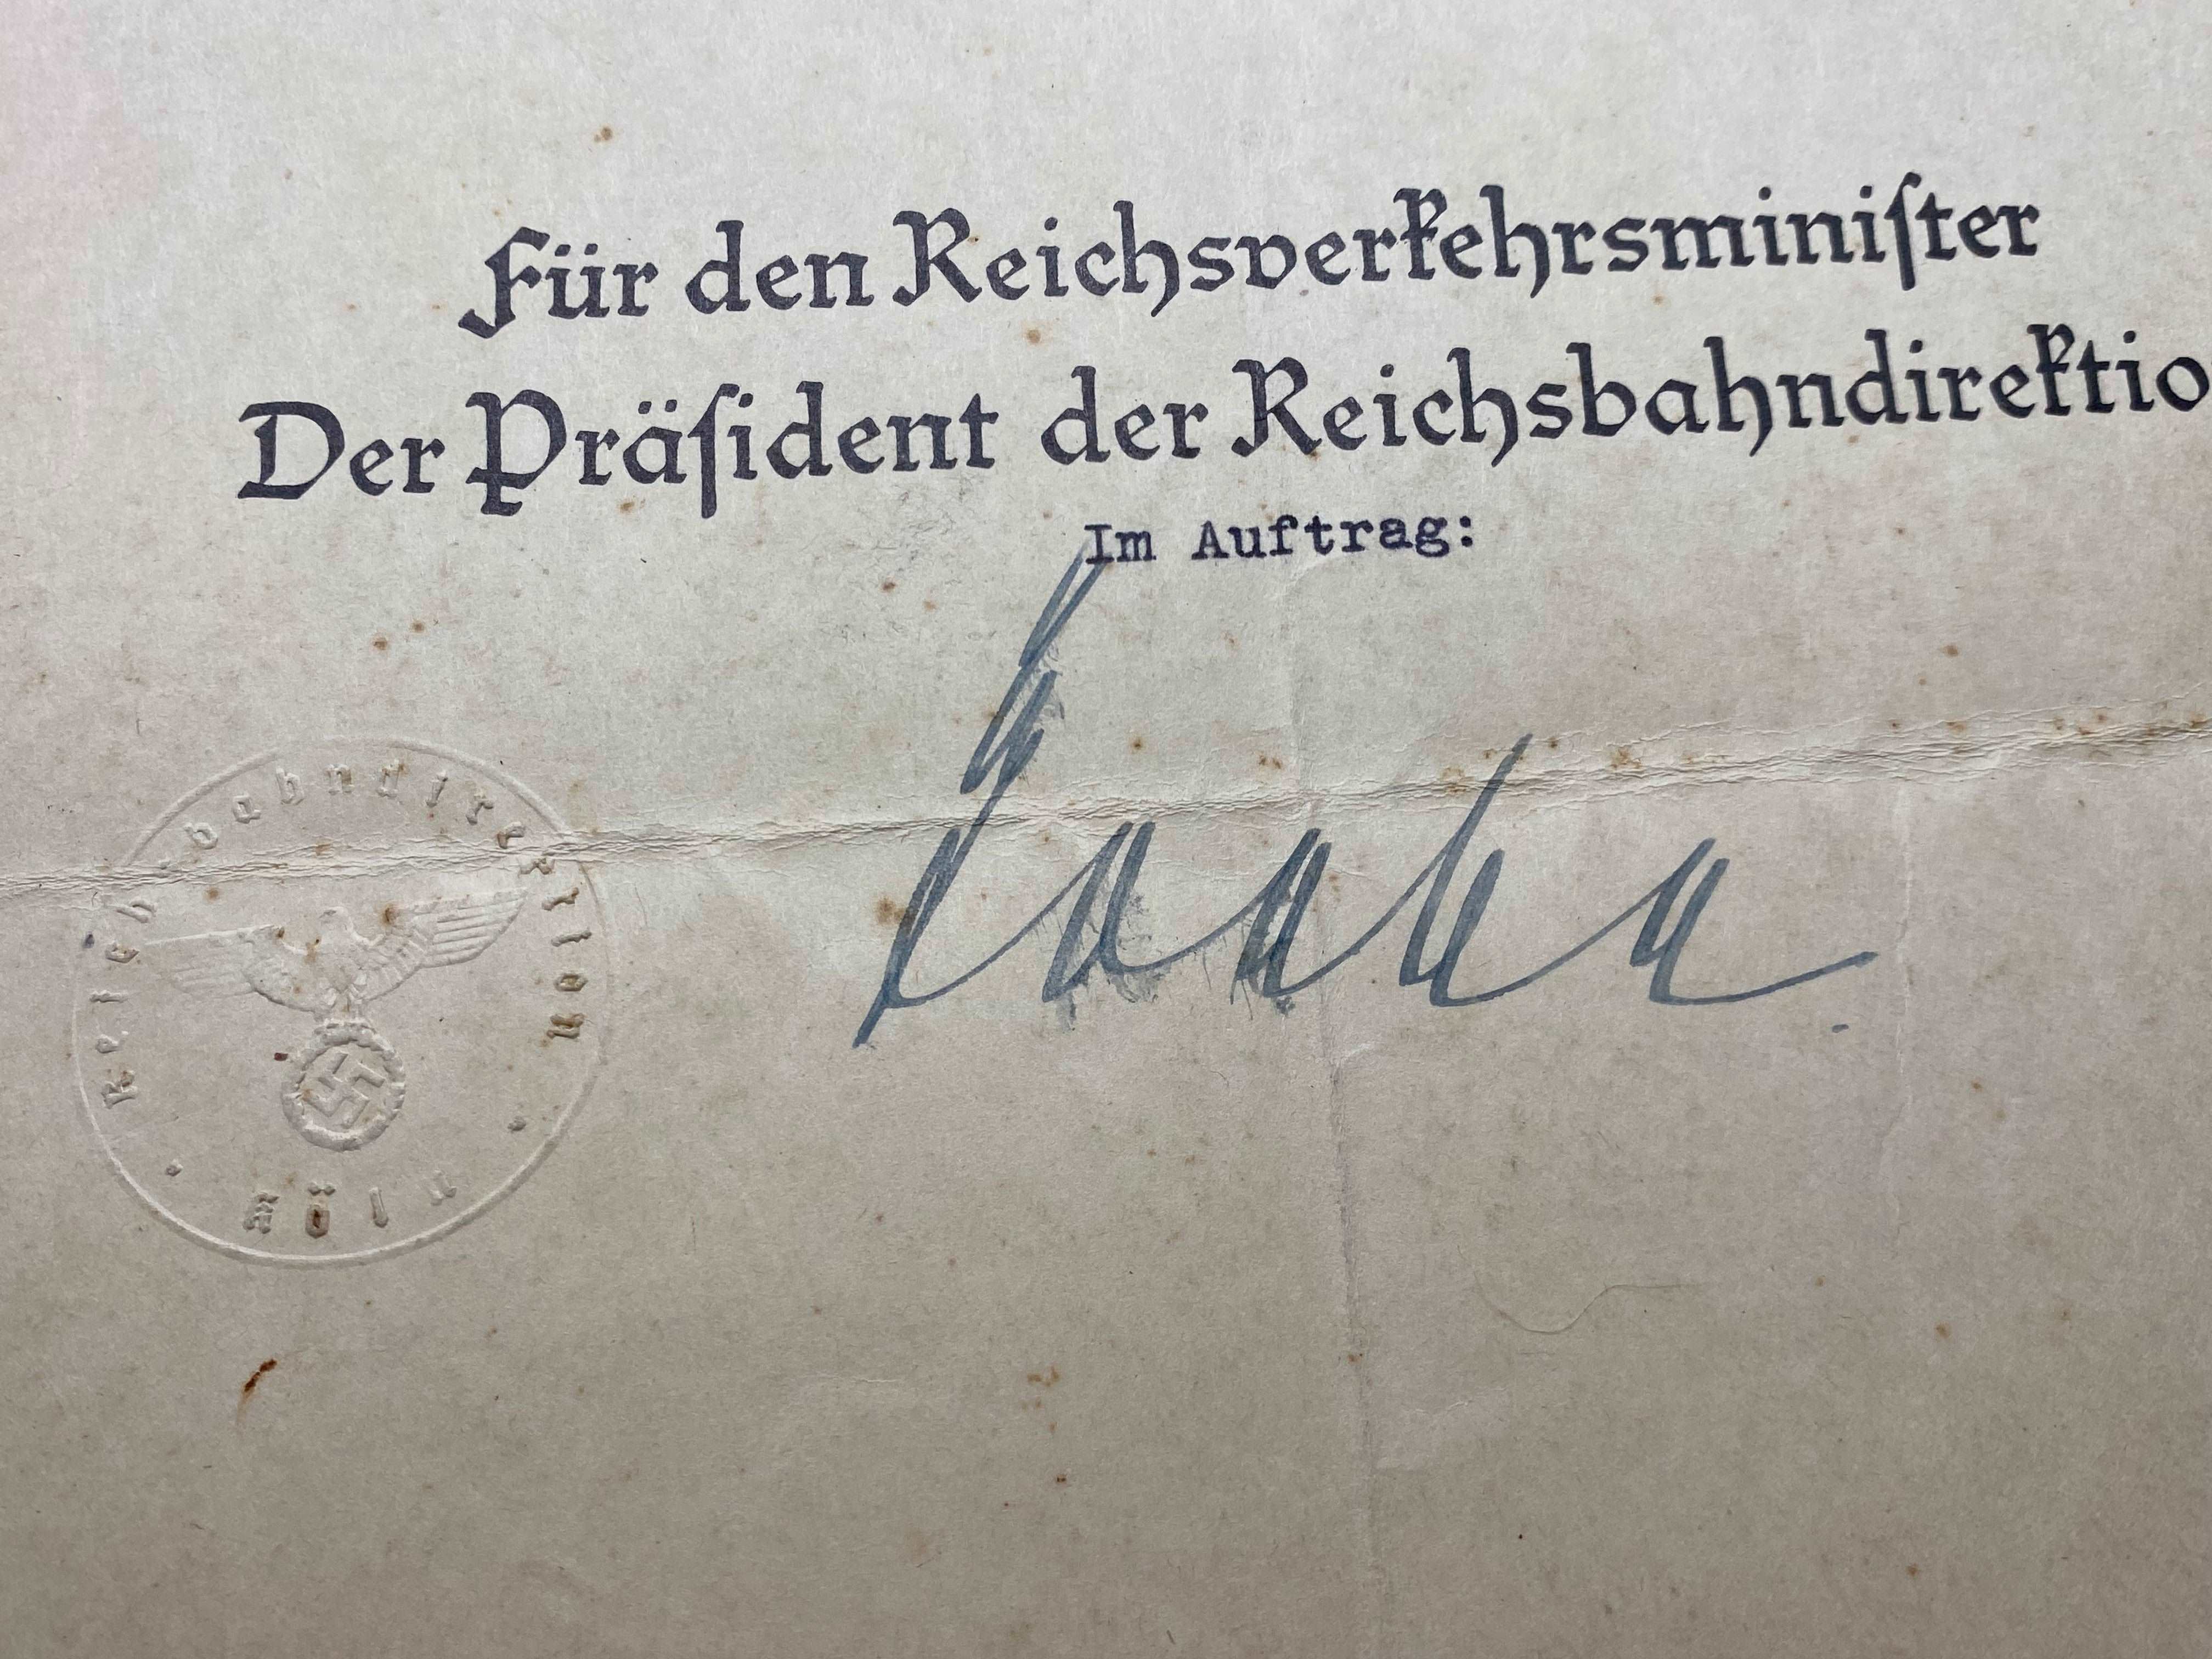 Für den Reichsverkehrsminiſter
Der Präſident der Reichsbahndirektio
Im Auftrag:
Reichsbahndirektion
Köln